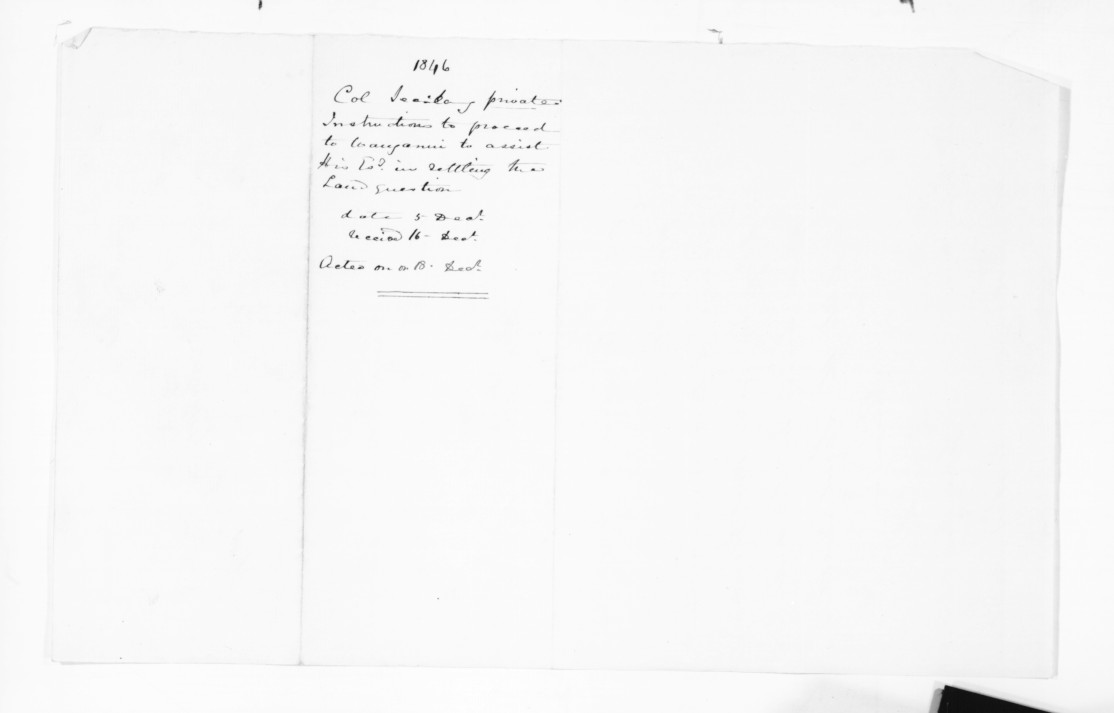 1846
Col private
Instructions to proceed
to Wanganui to assist
His Ex? in settling the
Land question
date 5 Decr
received 16 - Decr
Acted on on 18. Decr